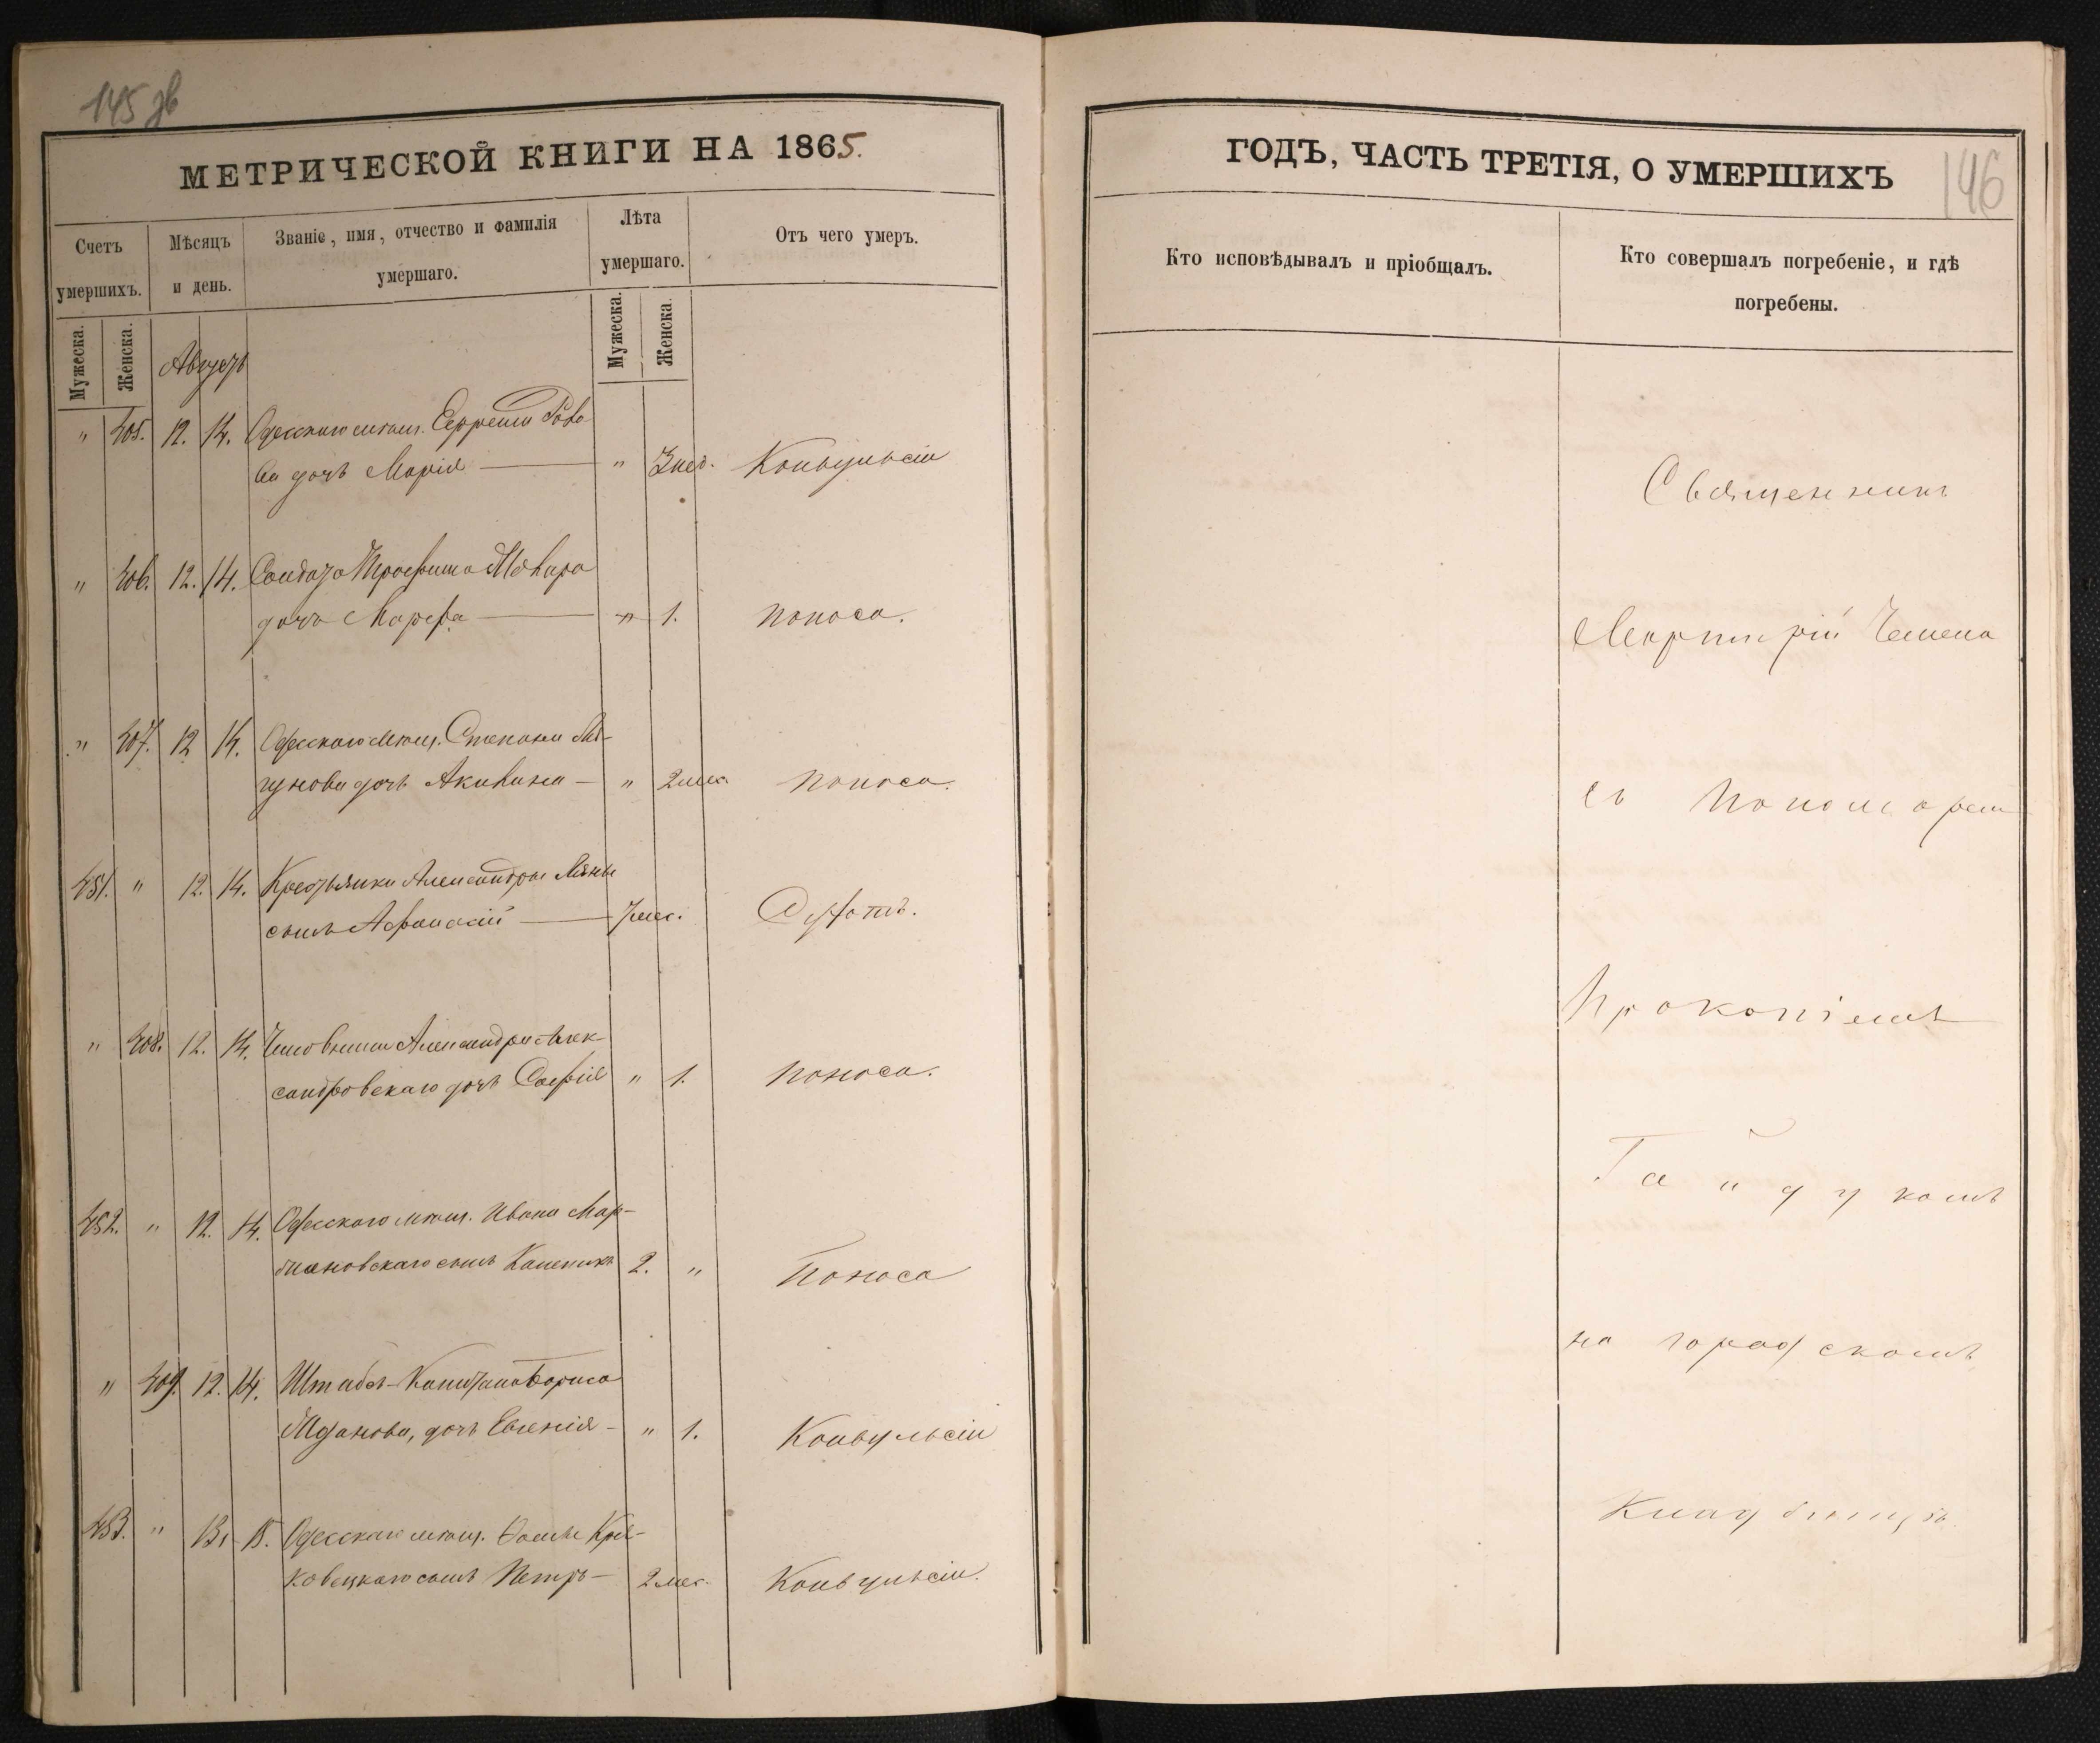 145 зв
МЕТРИЧЕСКОЙ КНИГИ НА 1865.
Счетъ умершихъ.
Мѣсяцъ и день.
Званіе, имя, отчество и фамилія умершаго.
Лѣта умершаго.
Отъ чего умеръ.
Мужеска.
Женска.
Мужеска.
Женска.
Августъ
" 405. 12. 14. Одесскаго мѣщ.
дочь Марія — " Конвульсіи
" 406. 12. 14. Солдата
дочь Марфа — " 1. Поноса.
" 407. 12 14. Одесскаго мѣщ. Степана
дочь Акилина — " 2 мес. Поноса.
451. " 12. 14. Александры
сынъ Афанасій — 7 мес.
" 408. 12. 14. Чиновника Александра Алек-
сандровскаго дочь Софія " 1. Поноса.
452. " 12. 14. Одесскаго мѣщ. Ивана Мар-
сынъ 2. " Поноса
" 409. 12. 14. Штабсъ-Капитана Бориса
Жданова, дочь Евгенія — " 1. Конвульсіи
453. " 13. 15. Одесскаго мѣщ. Ѳомы
сынъ Петръ — 2 мес. Конвульсіи.
ГОДЪ, ЧАСТЬ ТРЕТІЯ, О УМЕРШИХЪ
146
Кто исповѣдывалъ и пріобщалъ.
Кто совершалъ погребеніе, и гдѣ погребены.
Священникъ
Мартирій Чемена
съ Пономаремъ
Прокопіемъ
Гайдукомъ
на городскомъ
Кладбищѣ.